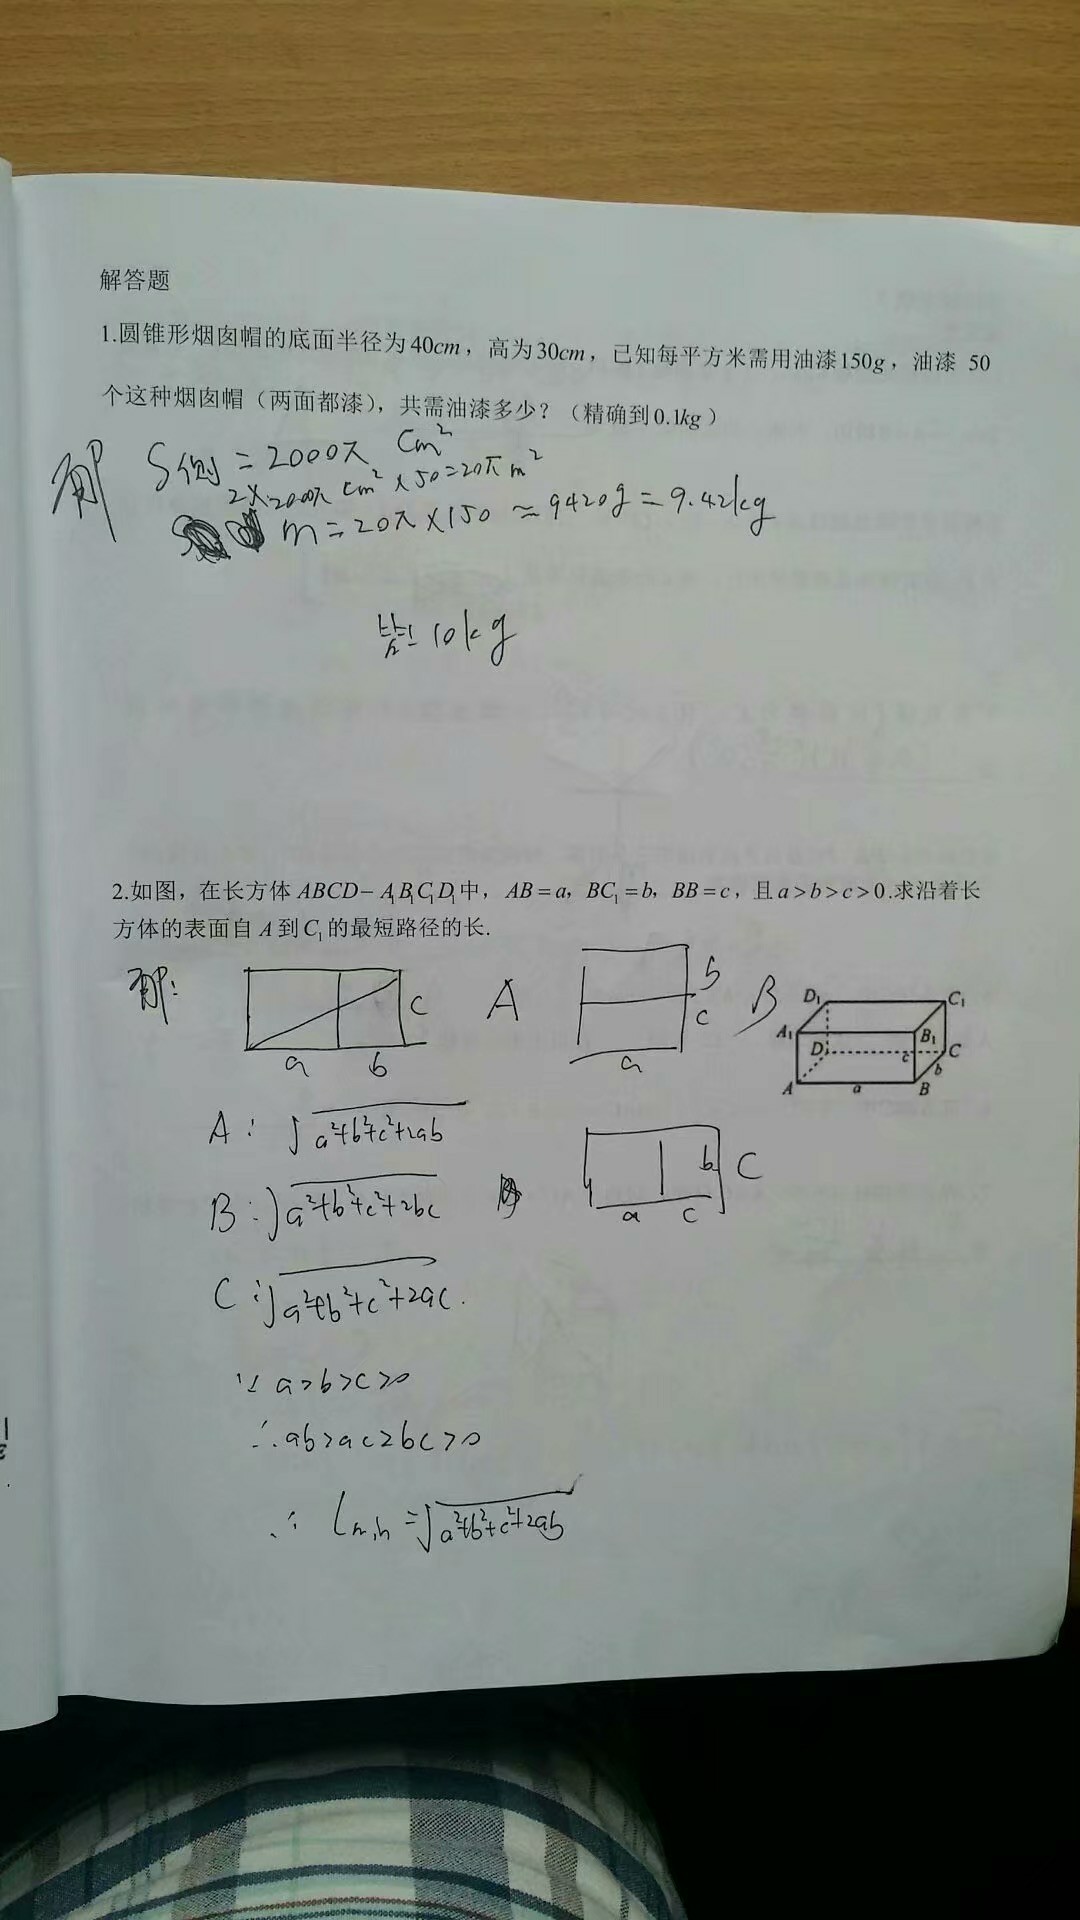 解答题
1.圆锥形烟囱帽的底面半径为40cm，高为30cm，已知每平方米需用油漆150g，油漆 50
个这种烟囱帽（两面都漆），共需油漆多少？（精确到0.1kg）
解 S侧 = 2000π cm²
2×2000π cm² ×50=20π m²
m=20π×150 ≈9420g=9.42kg
答:10kg
2.如图，在长方体 ABCD−A₁B₁C₁D₁中，AB=a，BC₁=b，BB=c，且a>b>c>0.求沿着长
方体的表面自A到C₁的最短路径的长.
解:
a b c A
b c a B
D₁ C₁ A₁ B₁ D C c b A a B
A: √a²+b²+c²+2ab
b C
a c
B: √a²+b²+c²+2bc
C: √a²+b²+c²+2ac.
∵ a>b>c>0
∴ab>ac>bc>0
∴ Lmin=√a²+b²+c²+2ab